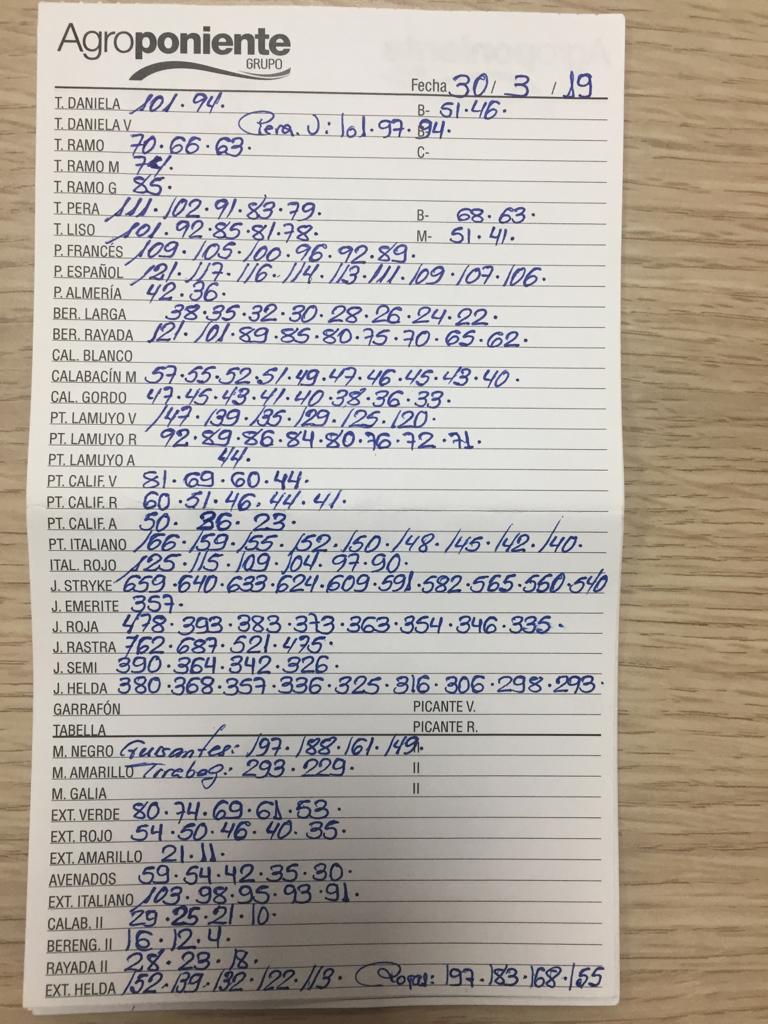 Agroponiente
GRUPO
Fecha 30/ 3 / 19
T. DANIELA 101 · 94 · B- 51 · 46 ·
T. DANIELA V Pera. V: 101 · 97 · 94 ·
T. RAMO 70 · 66 · 63 · C-
T. RAMO M
T. RAMO G 85 ·
T. PERA 111 · 102 · 91 · 83 · 79 · B- 68 · 63 ·
T. LISO 101 · 92 · 85 · 81 · 78 · M- 51 · 41 ·
P. FRANCÉS 109 · 105 · 100 · 96 · 92 · 89 ·
P. ESPAÑOL 121 · 117 · 116 · 114 · 113 · 111 · 109 · 107 · 106 ·
P. ALMERÍA 42 · 36 ·
BER. LARGA 38 · 35 · 32 · 30 · 28 · 26 · 24 · 22 ·
BER. RAYADA 121 · 101 · 89 · 85 · 80 · 75 · 70 · 65 · 62 ·
CAL. BLANCO
CALABACÍN M 57 · 55 · 52 · 51 · 49 · 47 · 46 · 45 · 43 · 40 ·
CAL. GORDO 47 · 45 · 43 · 41 · 40 · 38 · 36 · 33 ·
PT. LAMUYO V 147 · 139 · 135 · 129 · 125 · 120 ·
PT. LAMUYO R 92 · 89 · 86 · 84 · 80 · 76 · 72 · 71 ·
PT. LAMUYO A 44 ·
PT. CALIF. V 81 · 69 · 60 · 44 ·
PT. CALIF. R 60 · 51 · 46 · 44 · 41 ·
PT. CALIF. A 50 · 36 · 23 ·
PT. ITALIANO 166 · 159 · 155 · 152 · 150 · 148 · 145 · 142 · 140 ·
ITAL. ROJO 125 · 115 · 109 · 104 · 97 · 90 ·
J. STRYKE 659 · 640 · 633 · 624 · 609 · 591 · 582 · 565 · 560 · 540
J. EMERITE 357 ·
J. ROJA 478 · 393 · 383 · 373 · 363 · 354 · 346 · 335 ·
J. RASTRA 762 · 687 · 521 · 475 ·
J. SEMI 390 · 364 · 342 · 326 ·
J. HELDA 380 · 368 · 357 · 336 · 325 · 316 · 306 · 298 · 293 ·
GARRAFÓN PICANTE V.
TABELLA PICANTE R.
M. NEGRO Guisantes: 197 · 188 · 161 · 149 ·
M. AMARILLO Tirabeq.: 293 · 229 · II
M. GALIA II
EXT. VERDE 80 · 74 · 69 · 61 · 53 ·
EXT. ROJO 54 · 50 · 46 · 40 · 35 ·
EXT. AMARILLO 21 · 11 ·
AVENADOS 59 · 54 · 42 · 35 · 30 ·
EXT. ITALIANO 103 · 98 · 95 · 93 · 91 ·
CALAB. II 29 · 25 · 21 · 10 ·
BERENG. II 16 · 12 · 4 ·
RAYADA II 28 · 23 · 18 ·
EXT. HELDA 152 · 139 · 132 · 122 · 113 · 197 · 183 · 168 · 155